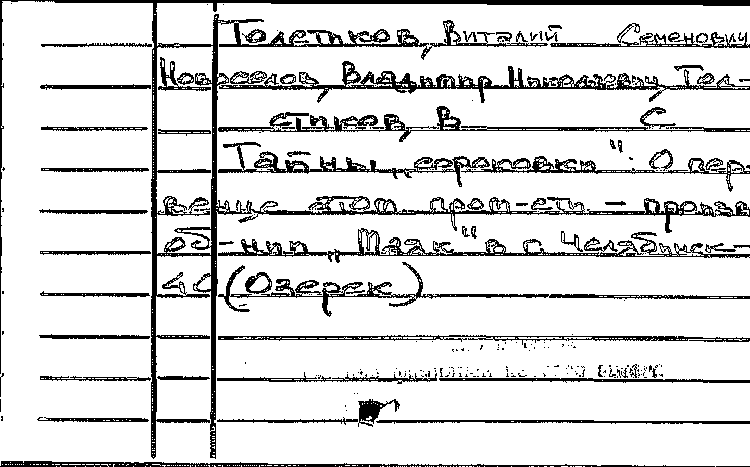 Толстиков, Виталий Семенович
Новоселов, Владимир Николаевич, Тол-
стиков, В С
Тайны „сороковки": О пер-
венце атом. пром-сти. – произв
об-нии „Маяк" в г. Челябинск-
40 (Озерск)